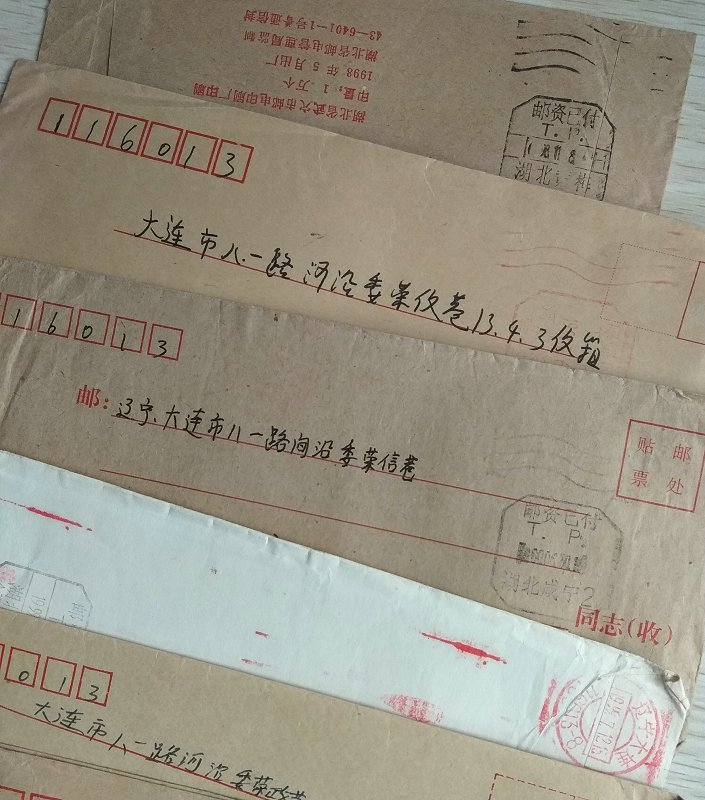 43—6401—1—1号普通信封
湖北省邮电管理局监制
1998 年 5 月出厂
印量:1 万个
湖北省武穴市邮电印刷厂印刷
邮资已付
T. P.
湖北
116013
大连市八一路河沿委荣仪巷13.4.3仪箱
16013
邮:辽宁.大连市八一路河沿委荣信巷
贴邮
票处
邮资已付
T. P.
湖北咸宁2
同志(收)
013
大连市八一路河沿委荣